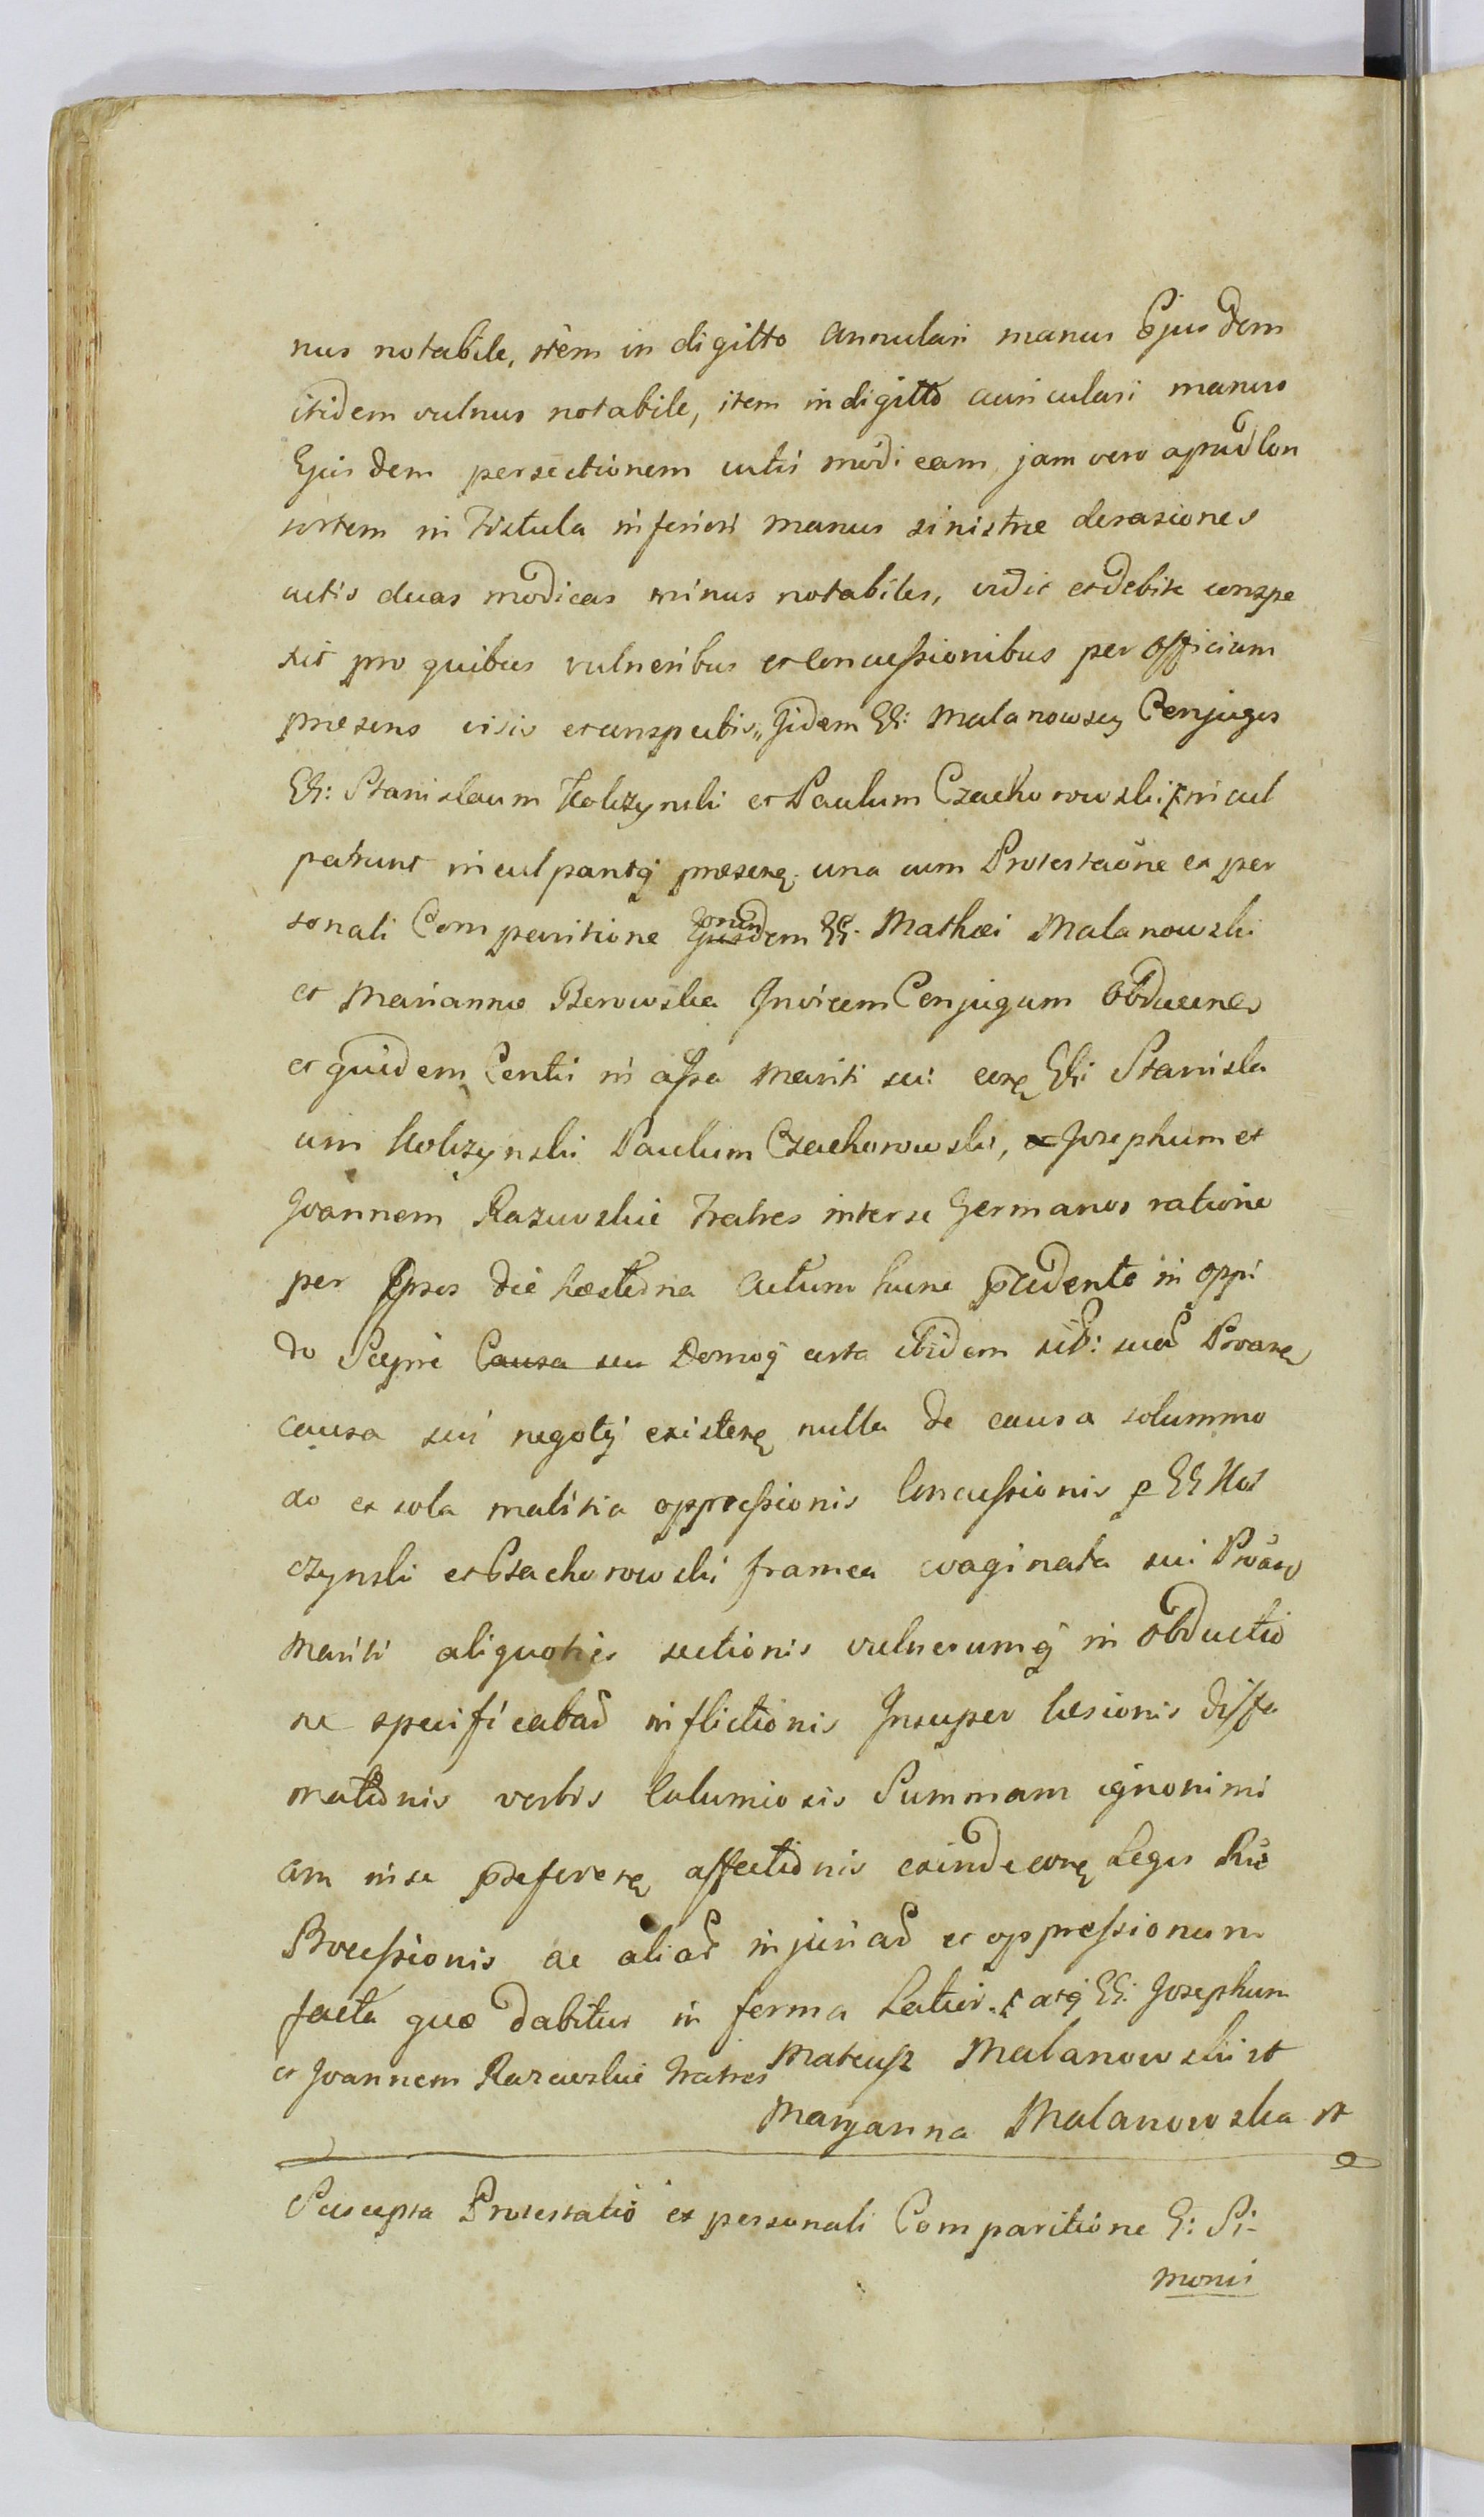 nus notabile, item in digitto annulari manus Ejusdem
itidem vulnus notabile, item in digitto auriculari manus
Ejusdem persectionem cutis modicam, jam vero apud Con
sortem in Fistula inferiori manus sinistræ derasiones
cutis duas modicas minus notabiles, vidit et debite conspe
xit pro quibus vulneribus et Concuſsionibus per Officium
præsens visis et conspectis, Iidem GG: Malanowscy Conjuges
GG: Stanislaum Kolczynski et Paulum Czachorowski incul
patrunt inculpantq præsenę. una cum Protestaõne ex per
sonali Comparitione Eorundem GG. Mathæi Malanowski
et Mariannæ Berowska Invicem Conjugum Obducunę
et quidem Contis in aſsa Mariti sui corę GG: Stanisla
um Kolczynski Paulum Czachorowski, Josephum et
Joannem Razowskie Fratres inter se Germanos ratione
per Ipsos die hæsterna Actum hunc p̃cedente in oppi
do Scępie Causa seu Domoq certa ibidem
causa sui negotÿ existenę nulla de causa solummo
do ex sola malitia oppreſsionis Concuſsionis p GG Kol
czynski et Czachorowski framea evaginata sui
Mariti aliquoties sectionis vulnerumq in obductio
ne specificatař inflictionis Insuper læsionis diffa
mationis verbis Calumiosis Summam ignonimi
am in se p̃seferenę affectionis exinde Legis
Proceſsionis ac aliař injuriař et oppreſsionum
facta quæ dabitur in forma Latior. atq GG: Josephum
et Joannem Razowskie Fratres Mateuſz Malanowski
Maryanna Malanowska
Suscepta Protestatio ex personali Comparitione G: Si-
monis